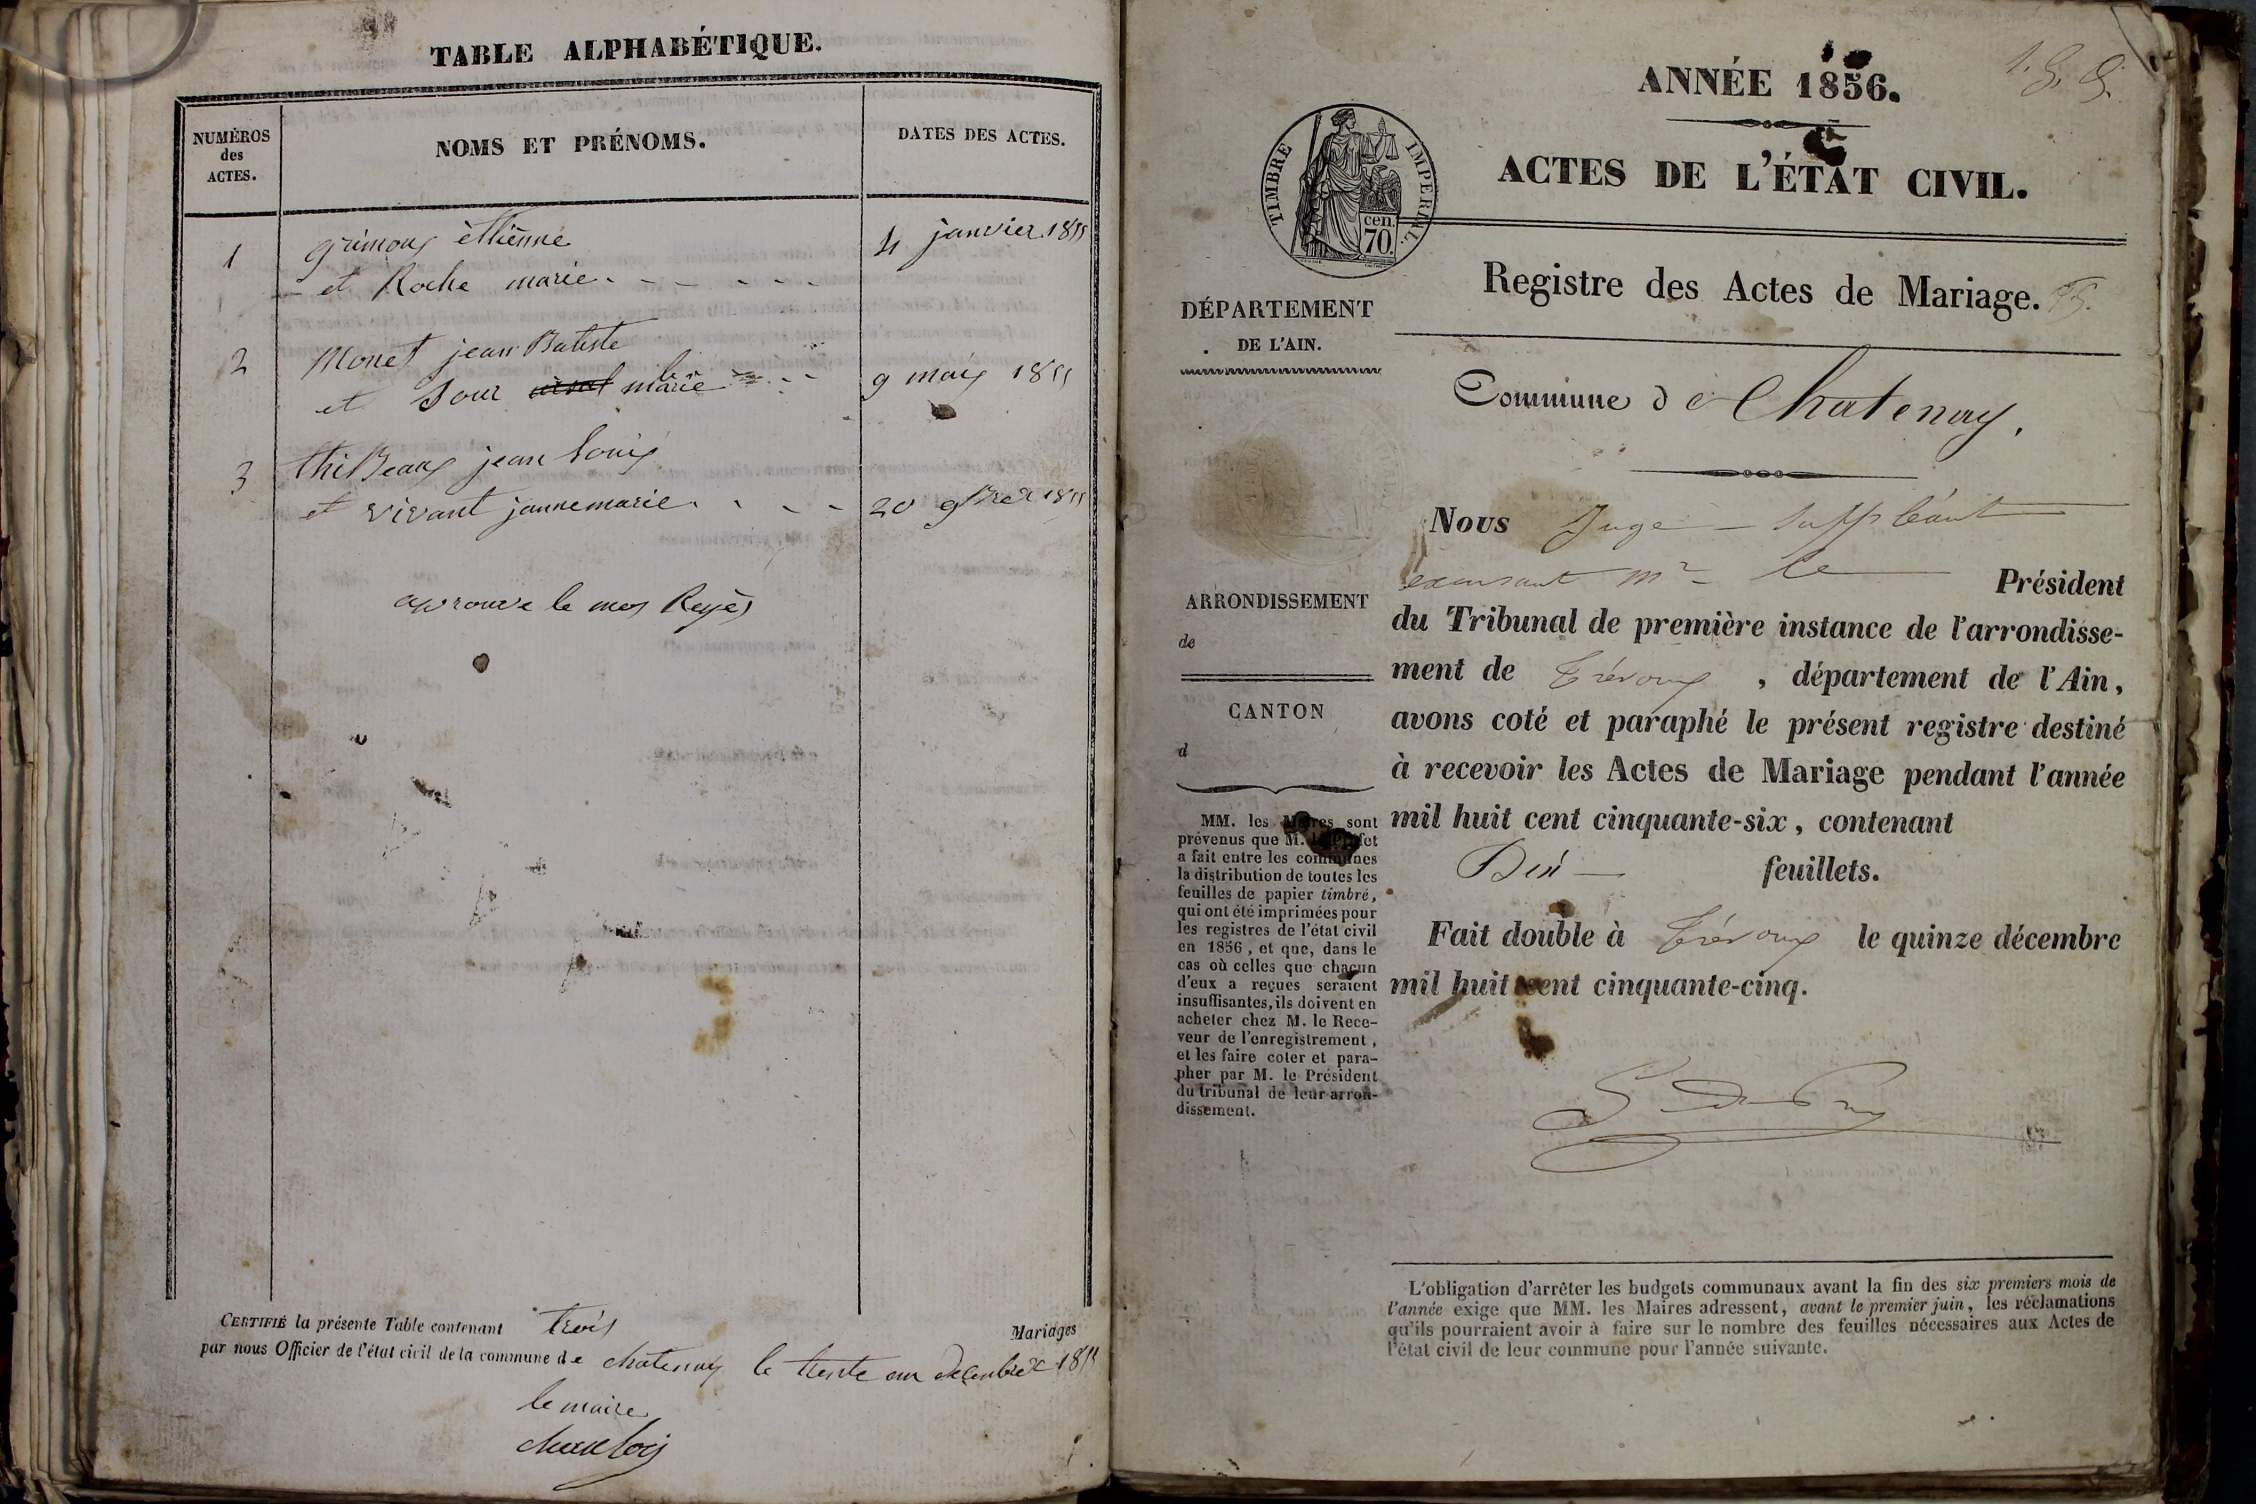 TABLE ALPHABÉTIQUE.
NUMÉROS
des
ACTES.
NOMS ET PRÉNOMS.
DATES DES ACTES.
1 grimoux ètienne 4 janvier 1855
et Roche marie
2 Monet jean Batiste
et Sour marie 9 mars 1855
3 thiBeaux jean louis
et vivant jannemarie 20 9bre 1855
aprouve le mos Reyès
CERTIFIÉ la présente Table contenant trois Mariages
par nous Officier de l'état civil de la commune de chatenay le trente un decenbre 1855
le maire
ANNÉE 1856.
ACTES DE L'ÉTAT CIVIL.
TIMBRE IMPERIAL.
cen.
70
Registre des Actes de Mariage.
DÉPARTEMENT
DE L'AIN.
Commune de Chatenay.
Nous Juge suppléant
excusant Mr le Président
du Tribunal de première instance de l'arrondisse-
ment de Trévoux, département de l'Ain,
avons coté et paraphé le présent registre destiné
à recevoir les Actes de Mariage pendant l'année
mil huit cent cinquante-six, contenant
Dix feuillets.
Fait double à Trévoux le quinze décembre
mil huit cent cinquante-cinq.
ARRONDISSEMENT
de
CANTON
d
MM. les Maires sont
prévenus que M. le Préfet
a fait entre les communes
la distribution de toutes les
feuilles de papier timbré,
qui ont été imprimées pour
les registres de l'état civil
en 1856, et que, dans le
cas où celles que chacun
d'eux a reçues seraient
insuffisantes, ils doivent en
acheter chez M. le Rece-
veur de l'enregistrement,
et les faire coter et para-
pher par M. le Président
du tribunal de leur arron-
dissement.
L'obligation d'arrêter les budgets communaux avant la fin des six premiers mois de
l'année exige que MM. les Maires adressent, avant le premier juin, les réclamations
qu'ils pourraient avoir à faire sur le nombre des feuilles nécessaires aux Actes de
l'état civil de leur commune pour l'année suivante.